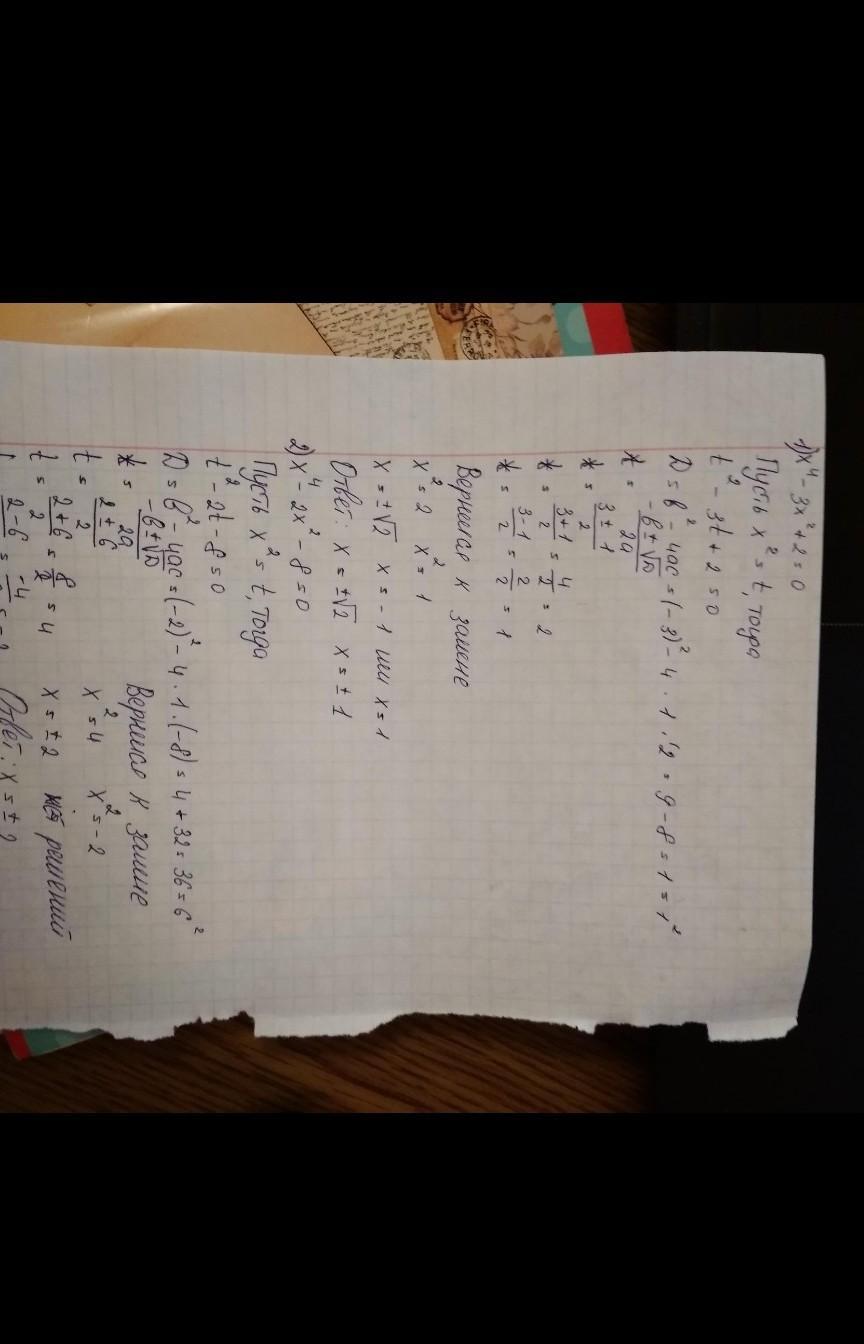 1) x⁴ - 3x² + 2 = 0
Пусть x² = t, тогда
t² - 3t + 2 = 0
D = b² - 4ac = (-3)² - 4 · 1 · 2 = 9 - 8 = 1 = 1²
t = (-b ± √D)/2a
t = (3 ± 1)/2
t = (3+1)/2 = 4/2 = 2
t = (3-1)/2 = 2/2 = 1
Вернемся к замене
x² = 2 x² = 1
x = ±√2 x = -1 или x = 1
Ответ: x = ±√2 x = ±1
2) x⁴ - 2x² - 8 = 0
Пусть x² = t, тогда
t² - 2t - 8 = 0
D = b² - 4ac = (-2)² - 4 · 1 · (-8) = 4 + 32 = 36 = 6²
t = (-b ± √D)/2a
t = (2 ± 6)/2
t = (2+6)/2 = 8/2 = 4
t = (2-6)/2 = -4/2 = -2
Вернемся к замене
x² = 4 x² = -2
x = ±2 нет решений
Ответ: x = ±2